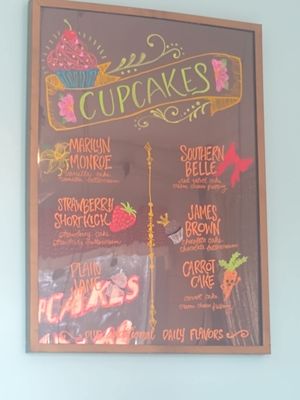 CUPCAKES
MARILYN
MONROE
vanilla cake
vanilla buttercream
STRAWBERRY
SHORTKICK
strawberry cake
strawberry buttercream
PLAIN
JANE
SOUTHERN
BELLE
red velvet cake
cream cheese frosting
JAMES
BROWN
chocolate cake
chocolate buttercream
CARROT
CAKE
carrot cake
cream cheese frosting
PLUS additional DAILY FLAVORS
CUPCAKES